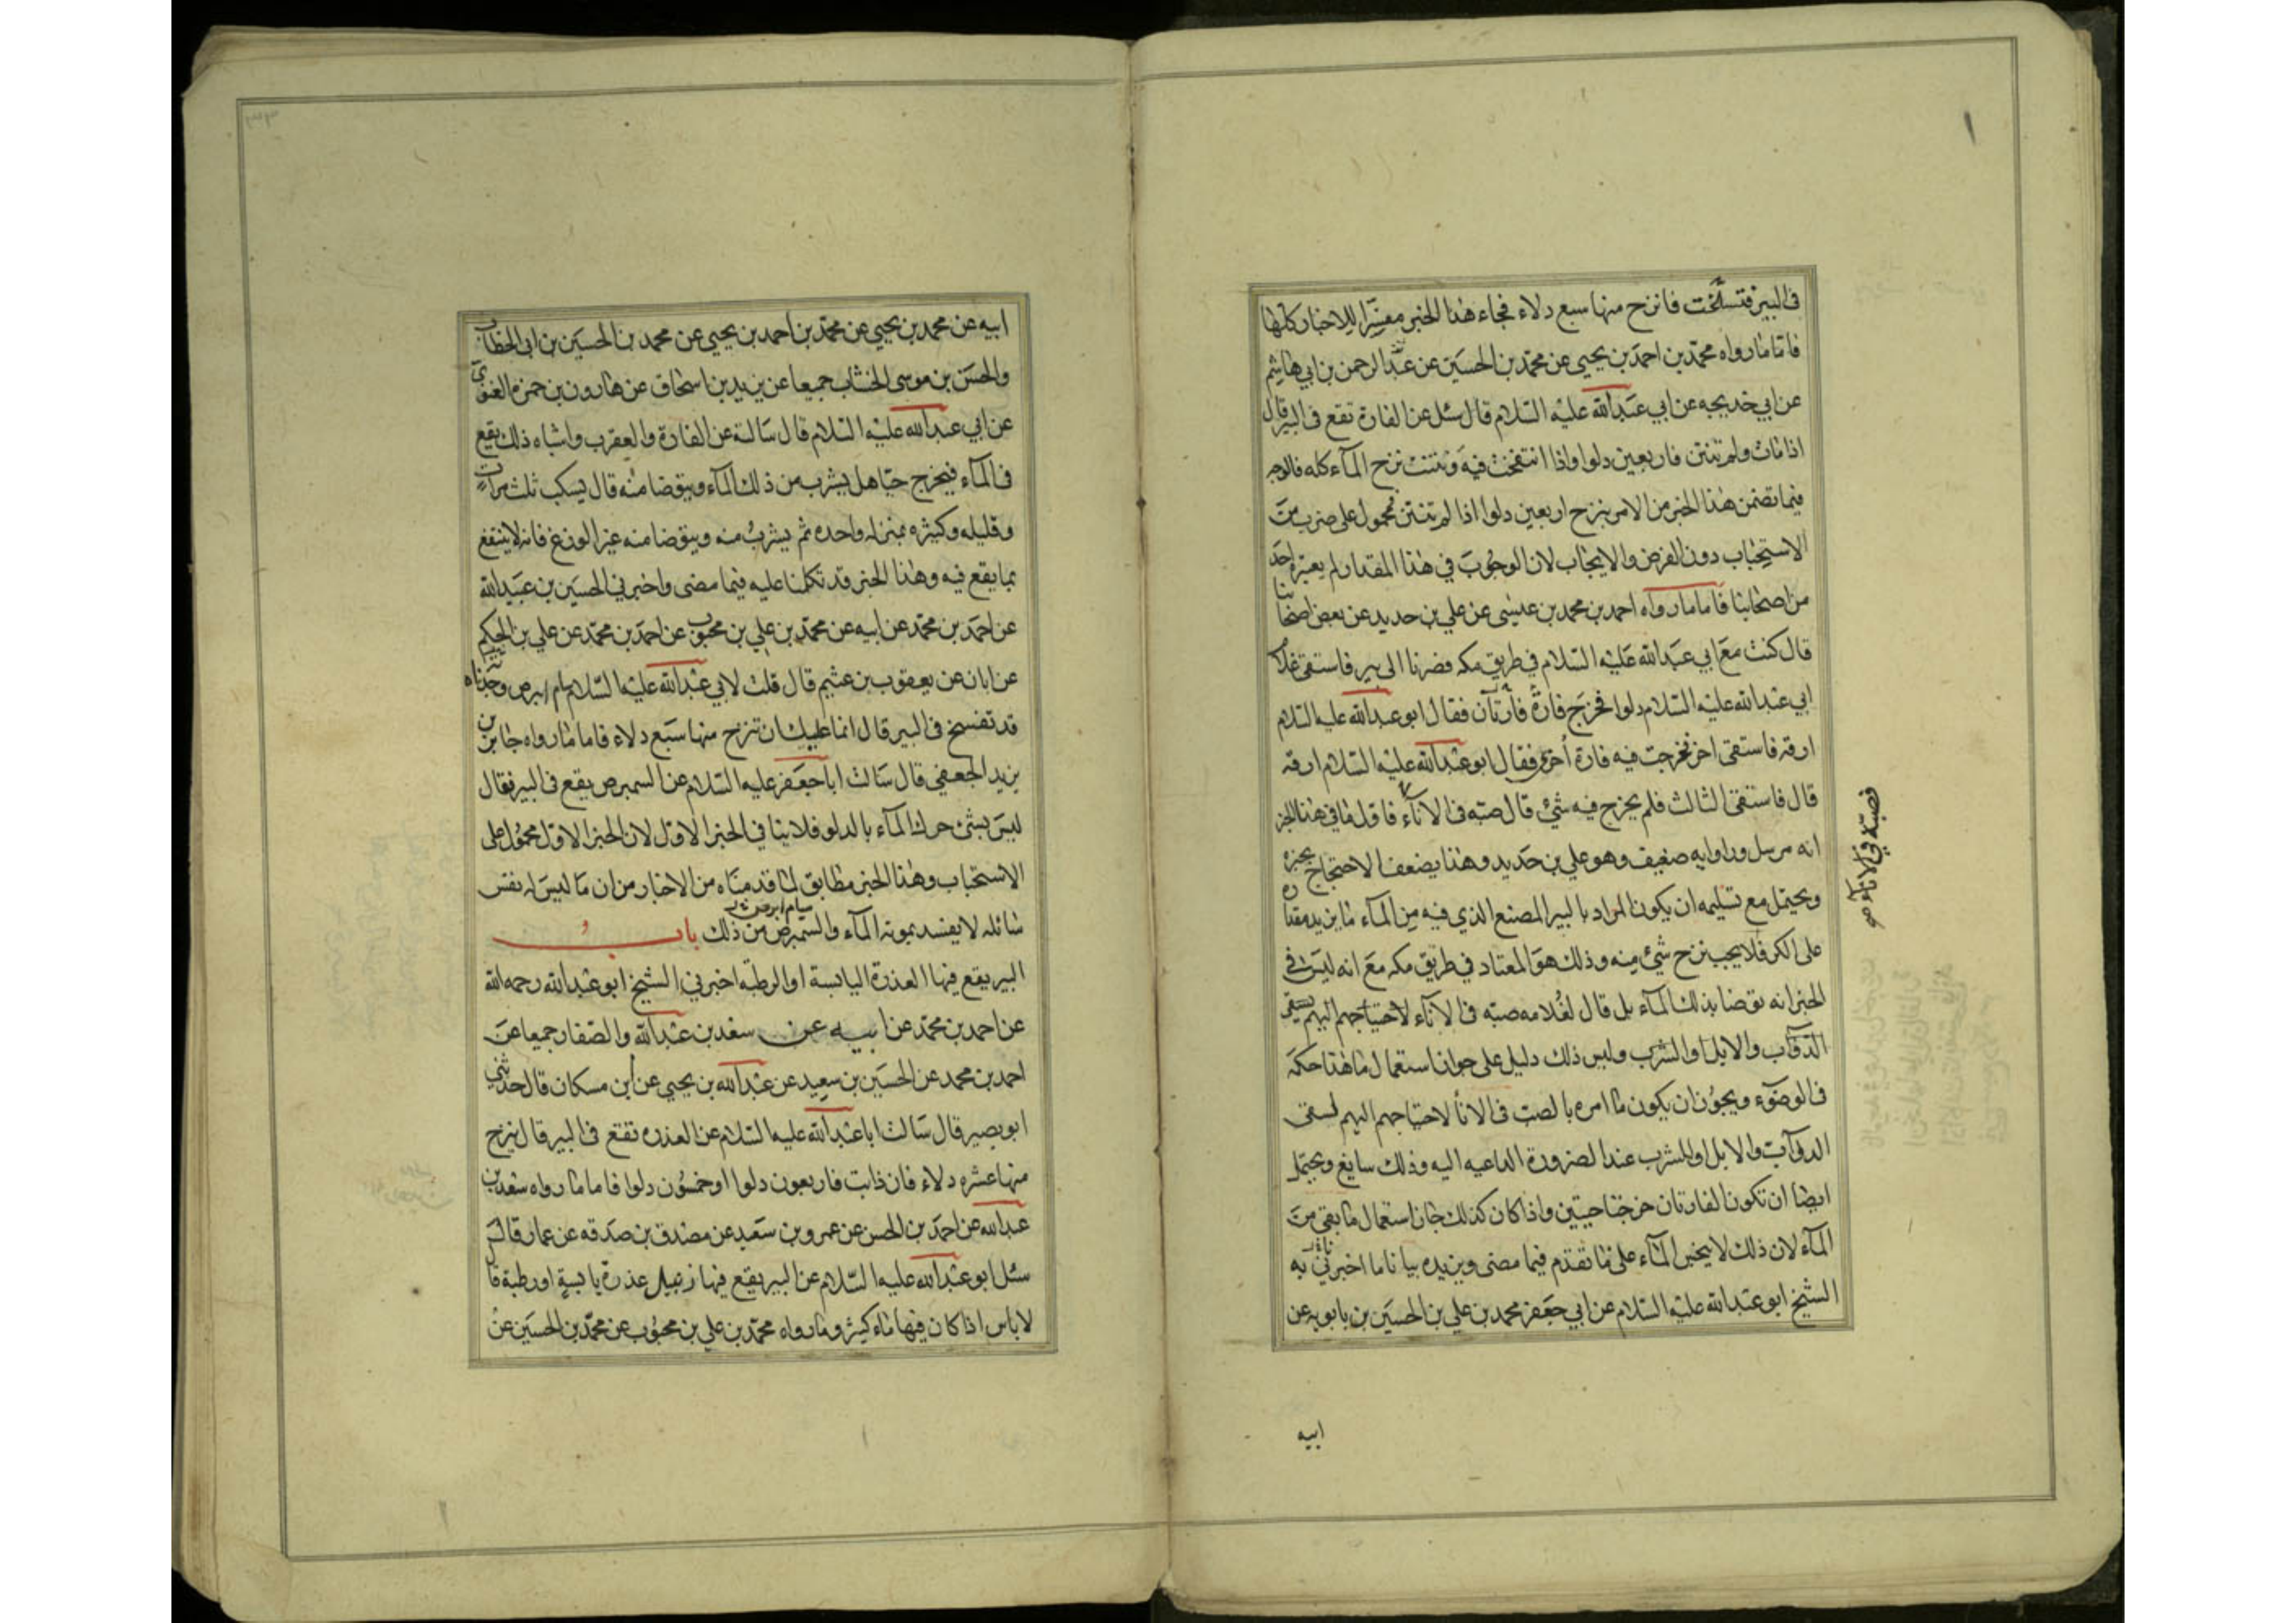 في البير فتسلخت فانزح منها سبع دلاء فجاء هذا الخبر مفسرا للاخبار كلها
فاما ما رواه محمد بن احمد بن يحيى عن محمد بن الحسين عن عبد الرحمن بن ابي هاشم
عن ابي خديجه عن ابي عبد الله عليه السلام قال سئل عن الفارة تقع في البير قال
اذا ماتت ولم تنتن فاربعين دلوا واذا انتفخت فيه ونتنت نزح المآء كله فالوجه
فيما تضمن هذا الخبر من الامر بنزح اربعين دلوا اذا لم تنتن محمول على ضرب من
الاستحباب دون الفرض والايجاب لان الوجوب في هذا المقدار لم يعتبره احد
من اصحابنا فاما ما رواه احمد بن محمد بن عيسى عن علي بن حديد عن بعض اصحابنا
قال كنت مع ابي عبد الله عليه السلام في طريق مكه فصرنا الى بير فاستقى غلام
ابي عبد الله عليه السلام دلوا فخرج فارة فارتان فقال ابو عبد الله عليه السلام
ارقه فاستقى اخر فخرجت فيه فارة اخرى فقال ابو عبد الله عليه السلام ارقه
قال فاستقى الثالث فلم يخرج فيه شئ قال صبه في الاناء فاقول ما في هذا الخبر
فصبه في الاناء
انه مرسل وراوايه ضعيف وهو علي بن حديد وهذا يضعف الاحتجاج بخبره
ويحتمل مع تسليمه ان يكون المراد بالبير المصنع الذي فيه من المآء ما يزيد مقداره
على الكر فلا يجب نزح شئ منه وذلك هو المعتاد في طريق مكه مع انه ليس في
الخبر انه توضا بذلك المآء بل قال لغلامه صبه في الانآء لاحتياجهم اليهم لسقي
الدوآب والابل او الشرب وليس ذلك دليل على جواز استعمال ما هذا حكمه
في الوضوء ويجوز ان يكون ما امره بالصب في الانا لاحتياجهم اليهم لسقى
الدوآب والابل او للشرب عند الضرورة الداعيه اليه وذلك سايغ ويحتمل
ايضا ان تكون الفارتان خرجتا حيتين واذا كان كذلك جاز استعمال ما بقى من
المآء لان ذلك لا ينجس المآء على ما تقدم فيما مضى ويزيده بيانا ما اخبرني به
الشيخ ابو عبد الله عليه السلام عن ابي جعفر محمد بن علي بن الحسين بن بابويه عن
ابيه
ابيه عن محمد بن يحيى عن محمد بن احمد بن يحيى عن محمد بن الحسين بن ابي الخطاب
والحسن بن موسى الخشاب جميعا عن يزيد بن اسحاق عن هارون بن حمزه الغنوي
عن ابي عبد الله عليه السلام قال سالته عن الفارة والعقرب واشباه ذلك يقع
في المآء فيخرج حيا هل يشرب من ذلك المآء ويتوضا منه قال يسكب ثلث مرات
وقليله وكثيره بمنزله واحده ثم يشرب منه ويتوضا منه غير الوزغ فانه لا ينتفع
بما يقع فيه وهذا الخبر قد تكلمنا عليه فيما مضى واخبرني الحسين بن عبيد الله
عن احمد بن محمد عن ابيه عن محمد بن علي بن محبوب عن احمد بن محمد عن علي بن الحكم
عن ابان عن يعقوب بن عثيم قال قلت لابي عبد الله عليه السلام سام ابرص وجدناه
قد تفسخ في البير قال انما عليك ان تنزح منها سبع دلاء فاما ما رواه جابر بن
يزيد الجعفي قال سالت ابا جعفر عليه السلام عن السمبرص يقع في البير فقال
ليس بشئ حرك المآء بالدلو فلا ينافي الخبر الاول لان الخبر الاول محمول على
الاستحباب وهذا الخبر مطابق لما قدمناه من الاخبار من ان ما ليس له نفس
سائله لا يفسد بموته المآء والسمبرص من ذلك باب
سام ابرص
البير يقع فيها العذرة اليابسة او الرطبه اخبرني الشيخ ابو عبد الله رحمه الله
عن احمد بن محمد عن ابيه عن سعد بن عبد الله والصفار جميعا عن
احمد بن محمد عن الحسين بن سعيد عن عبد الله بن يحيى عن ابن مسكان قال حدثني
ابو بصير قال سالت ابا عبد الله عليه السلام عن العذره تقع في البير قال ينزح
منها عشره دلاء فان ذابت فاربعون دلوا او خمسون دلوا فاما ما رواه سعد بن
عبد الله عن احمد بن الحسن عن عمرو بن سعيد عن مصدق بن صدقه عن عمار قال
سئل ابو عبد الله عليه السلام عن البير يقع فيها زنبيل عذرة يابسة او رطبة قال
لا باس اذا كان فيها ماء كثير وما رواه محمد بن علي بن محبوب عن محمد بن الحسين عن